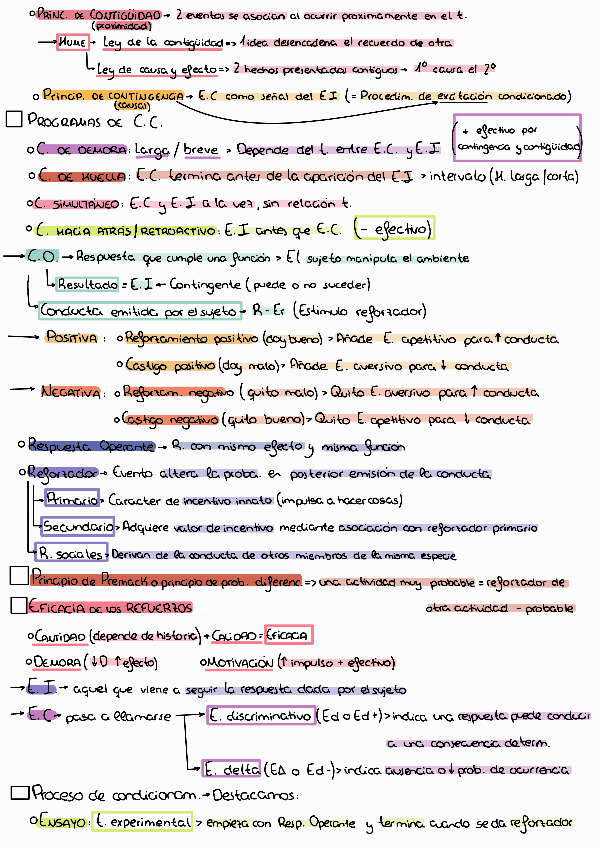 ○ PRINC. DE CONTIGÜIDAD → 2 eventos se asocian al ocurrir proximamente en el t.
(proximidad)
→ HUME → Ley de la contigüidad => 1 idea desencadena el recuerdo de otra
↳ Ley de causa y efecto => 2 hechos presentados contiguos → 1º causa el 2º
○ Princip. DE CONTINGENCIA → E.C como señal del E.I (= Procedim. de excitación condicionado)
(causas)
□ PROGRAMAS DE C.C.
(+ efectivo por contingencia y contigüidad)
○ C. DE DEMORA: larga / breve > Depende del t. entre E.C. y E.I
○ C. DE HUELLA: E.C termina antes de la aparición del E.I > intervalo (H. larga/corta)
○ C. SIMULTÁNEO: E.C y E.I a la vez, sin relación t.
○ C. HACIA ATRÁS / RETROACTIVO: E.I antes que E.C. (- efectivo)
→ C.O. → Respuesta que cumple una función > El sujeto manipula el ambiente
↳ Resultado = E.I ← Contingente (puede o no suceder)
Conducta emitida por el sujeto → R - Er (Estimulo reforzador)
→ POSITIVA: ○ Reforzamiento positivo (doy bueno) > Añade E. apetitivo para ↑ conducta
○ Castigo positivo (doy malo) > Añade E. aversivo para ↓ conducta
→ NEGATIVA: ○ Reforzam. negativo (quito malo) > Quito E. aversivo para ↑ conducta
○ Castigo negativo (quito bueno) > Quito E. apetitivo para ↓ conducta
○ Respuesta Operante → R. con mismo efecto y misma función
○ Reforzador → Evento altera la proba. en posterior emisión de la conducta
→ Primario > Caracter de incentivo innato (impulsa a hacer cosas)
→ Secundario > Adquiere valor de incentivo mediante asociación con reforzador primario
R. sociales > Derivan de la conducta de otros miembros de la misma especie
□ Principio de Premack o principio de prob. diferenc. => una actividad muy probable = reforzador de
otra actividad - probable
□ EFICACIA DE LOS REFUERZOS
○ CANTIDAD (depende de historia) + CALIDAD = EFICACIA
○ DEMORA (↓D ↑efecto) ○ MOTIVACIÓN (↑ impulso + efectivo)
→ E.I → aquel que viene a seguir la respuesta dada por el sujeto
→ E.C → pasa a llamarse → E. discriminativo (Ed o Ed+) > indica una respuesta puede conducir
a una consecuencia determ.
→ E. delta (E∆ o Ed-) > indica ausencia o ↓ prob. de ocurrencia
□ Proceso de condicionam. → Destacamos:
○ ENSAYO: t. experimental > empieza con Resp. Operante y termina cuando se da reforzador